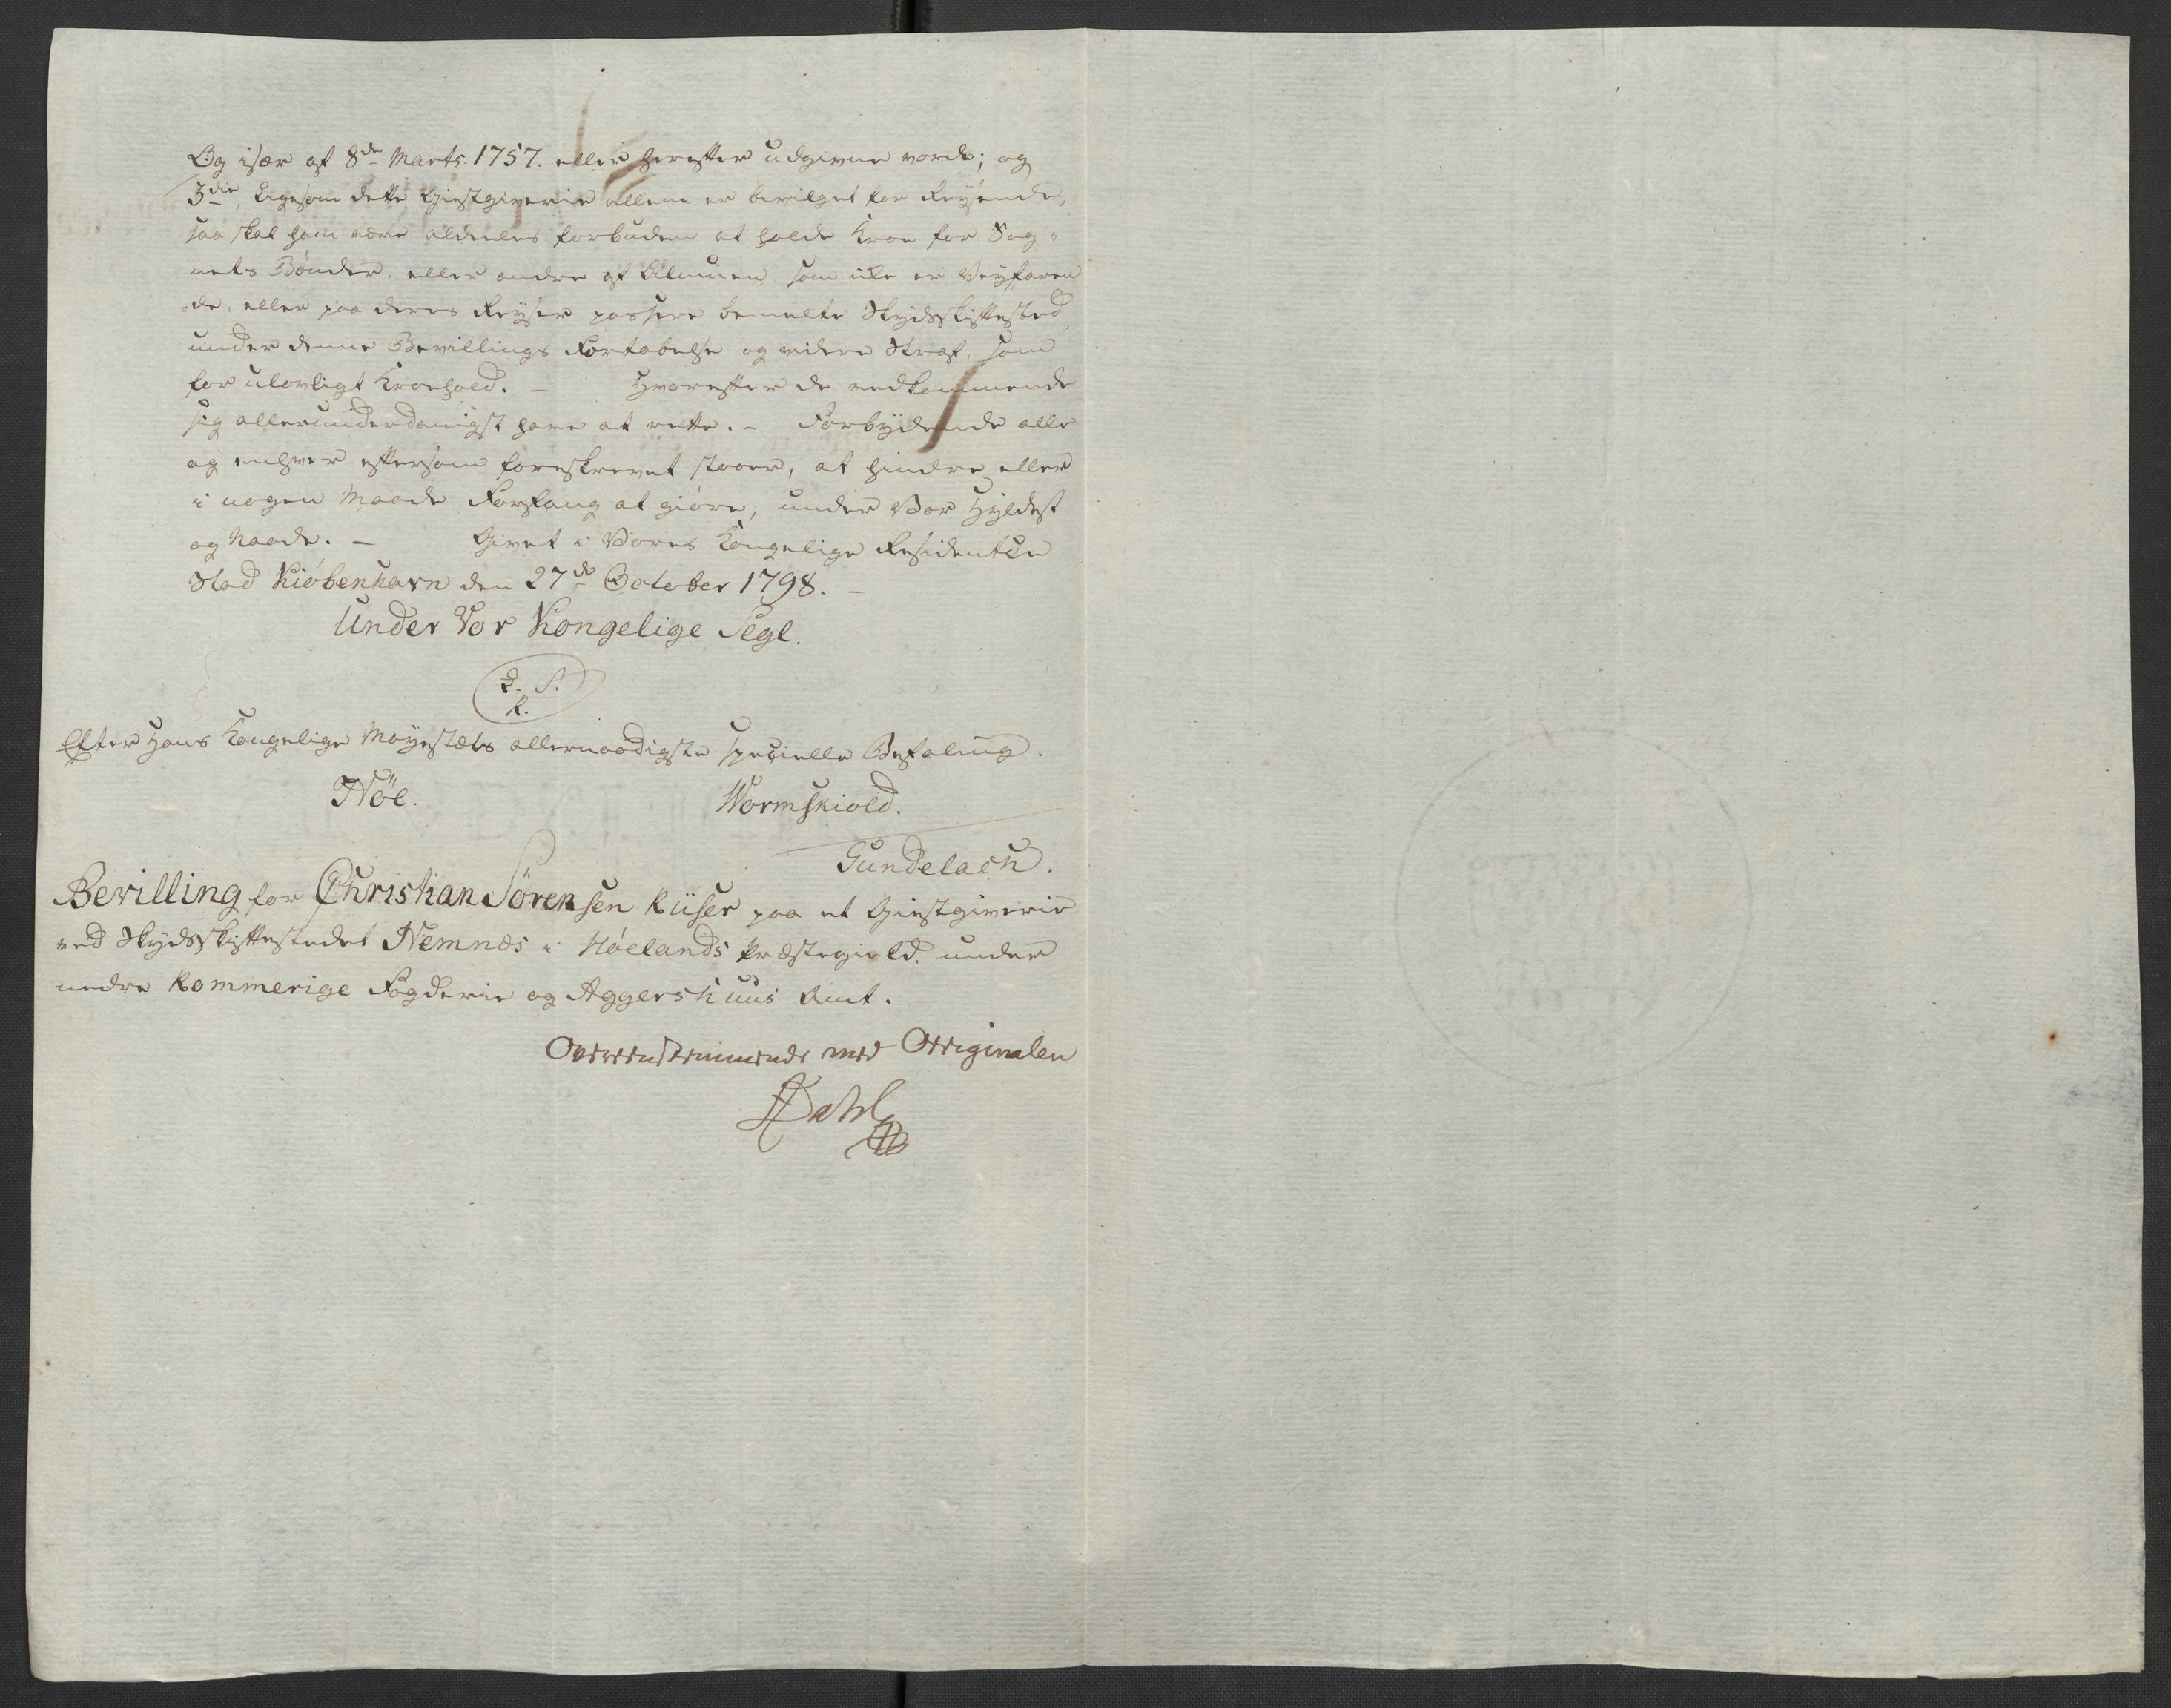 Og især af 8de Marts 1757. eller herefter udgivne vorde; og
3die, Ligesom dette Giestgiverie allene er bevilget for Reysende,
saa skal ham være aldeeles forbuden at holde Kroe for Sog=
nets Bønder, eller andre af Almuen, som ikke er Veyfaren
=de, eller paa deres Reyser passere bemelte Skydsskiftested,
under denne Bevillings Fortabelse og videre Straf, som
for ulovligt Kroehold. – Hvorefter de vedkommende
sig allerunderdanigst have at rette. – Forbydende alle
og enhver eftersom foreskrevet staaer, at hindre eller
i nogen Maade Forfang at giøre, under Vor Hyldest
og Naade. – Givet i Vores Kongelige Residentze
Stad Kiøbenhavn den 27de October 1798. –
Under Vor Kongelige Segl.
L. S.
R.
Efter Hans Kongelige Mayestæts allernaadigste specielle Befaling.
Nöe. Wormskiold.
Gundelach.
Bevilling for Christian Sörensen Riiser paa et Giestgiverie
ved Skydsskiftestedet Nemnes i Høelands Præstegield under
nedre Rommerige Fogderie og Aggershuus Amt. –
Overeensstemmende med Originalen
Dahl